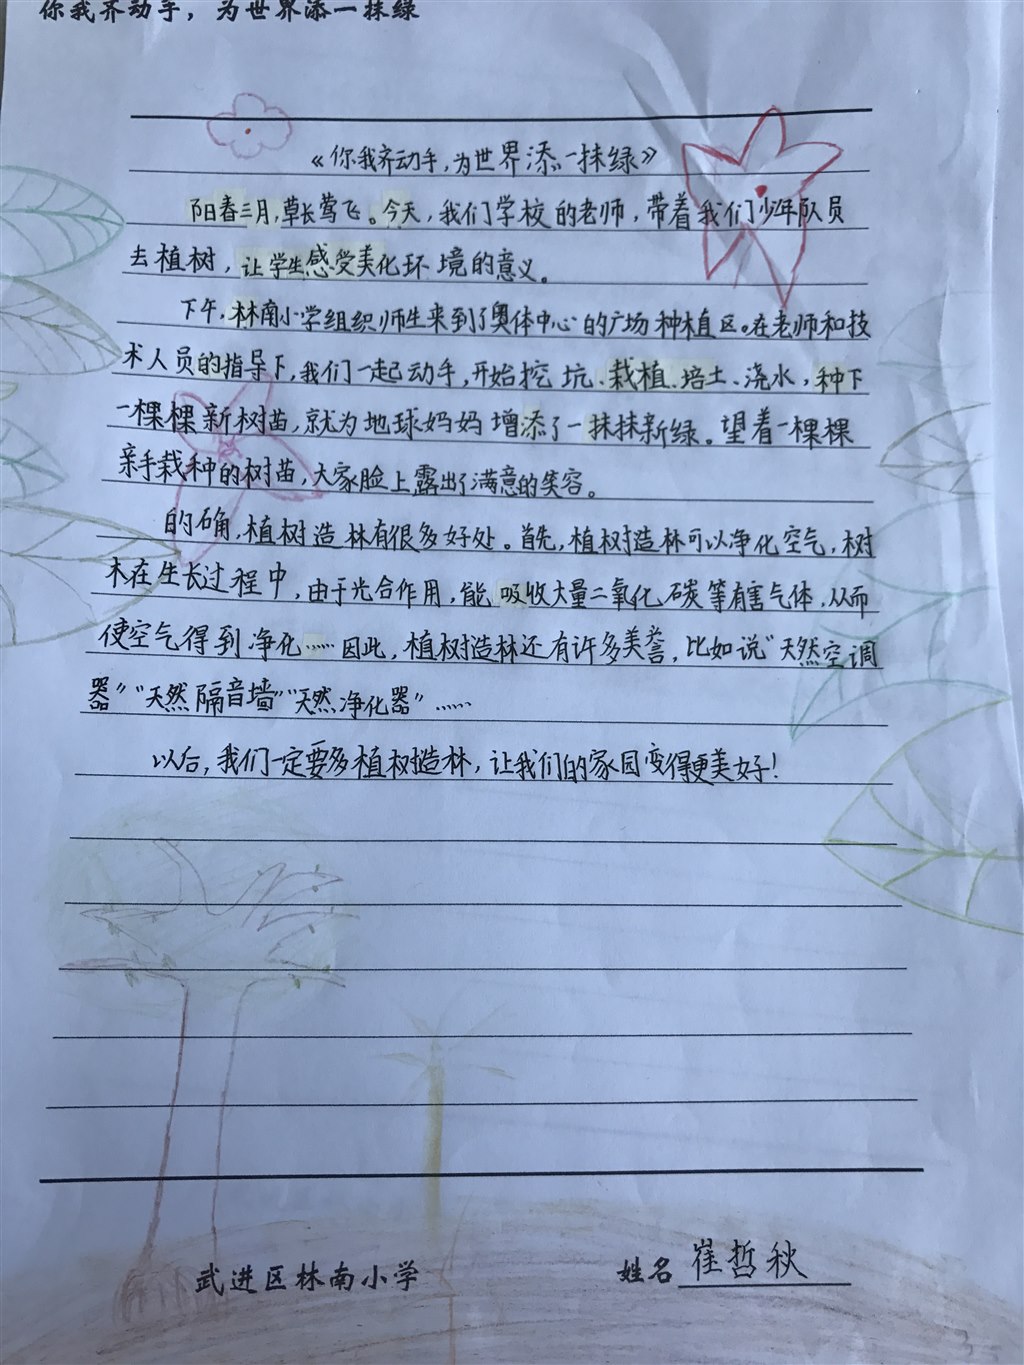 你我齐动手，为世界添一抹绿
《你我齐动手，为世界添一抹绿》
阳春三月，草长莺飞。今天，我们学校的老师，带着我们少年队员
去植树，让学生感受美化环境的意义。
下午，林南小学组织师生来到了奥体中心的广场种植区。在老师和技
术人员的指导下，我们一起动手，开始挖坑、栽植、培土、浇水，种下
一棵棵新树苗，就为地球妈妈增添了一抹抹新绿。望着一棵棵
亲手栽种的树苗，大家脸上露出了满意的笑容。
的确，植树造林有很多好处。首先，植树造林可以净化空气，树
木在生长过程中，由于光合作用，能吸收大量二氧化碳等有害气体，从而
使空气得到净化……因此，植树造林还有许多美誉，比如说“天然空调
器”“天然隔音墙”“天然净化器”……
以后，我们一定要多植树造林，让我们的家园变得更美好！
武进区林南小学
姓名 崔哲秋